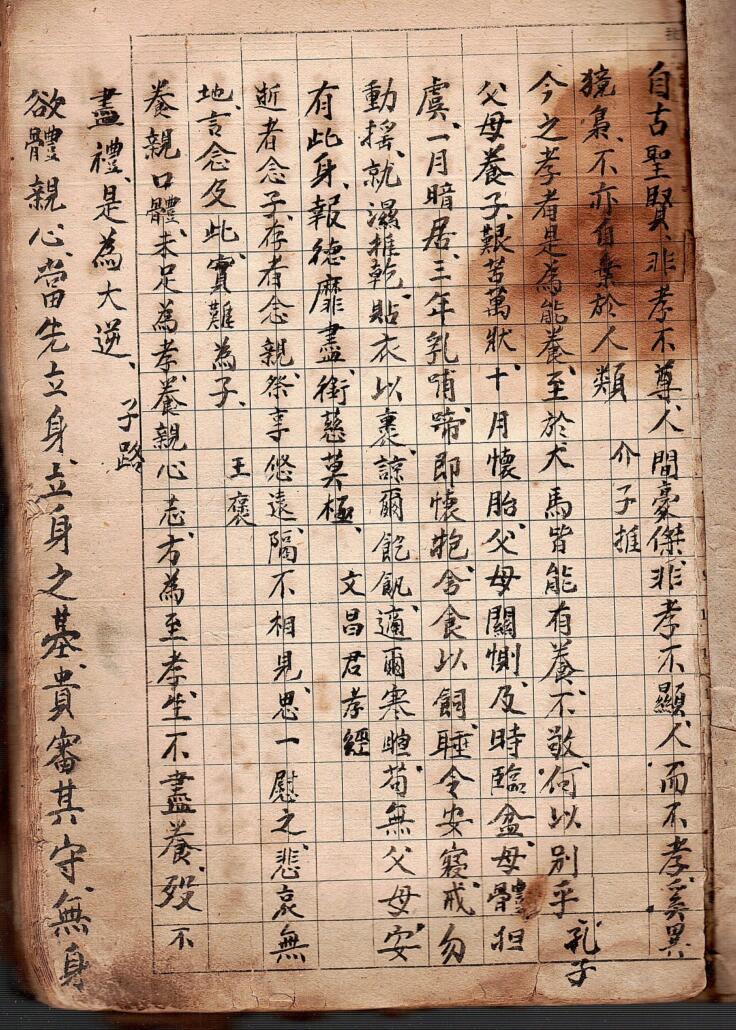 自古聖賢、非孝不尊、人間豪傑、非孝不顯、人而不孝、奚異
獍梟、不亦自棄於人類
介子推
今之孝者、是為能養、至於犬馬皆能有養、不敬、何以別乎
孔子
父母養子、艱苦萬狀、十月懷胎、父母關惻、及時臨盆、母體担
虞、一月暗居、三年乳哺、啼即懷抱、含食以飼、睡令安寢、戒勿
動搖、就濕推乾、貼衣以裹、諒爾飽飢、適爾寒暄、苟無父母、安
有此身、報德靡盡、銜慈莫極、
文昌君孝經
逝者念子、存者念親、祭享悠遠、隔不相見、思一慰之、悲哀無
地、言念及此、實難為子、
王褒
養親口體、未足為孝、養親心志、方為至孝、生不盡養、歿不
盡禮、是為大逆、
子路
欲體親心、當先立身、立身之基、貴審其守、無身